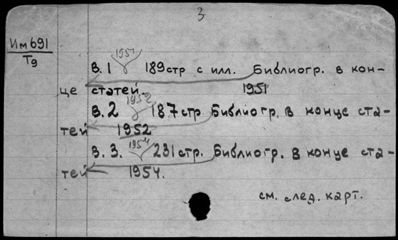 3
Им 691
Тд
В. 1 1951 189 стр с илл. Библиогр. в кон-
це статей 1951
В. 2 1952 187 стр. Библиогр. в конце ста-
тей 1952
В. 3. 1954 231 стр. Библиогр. в конце ста-
тей 1954.
см. след. карт.